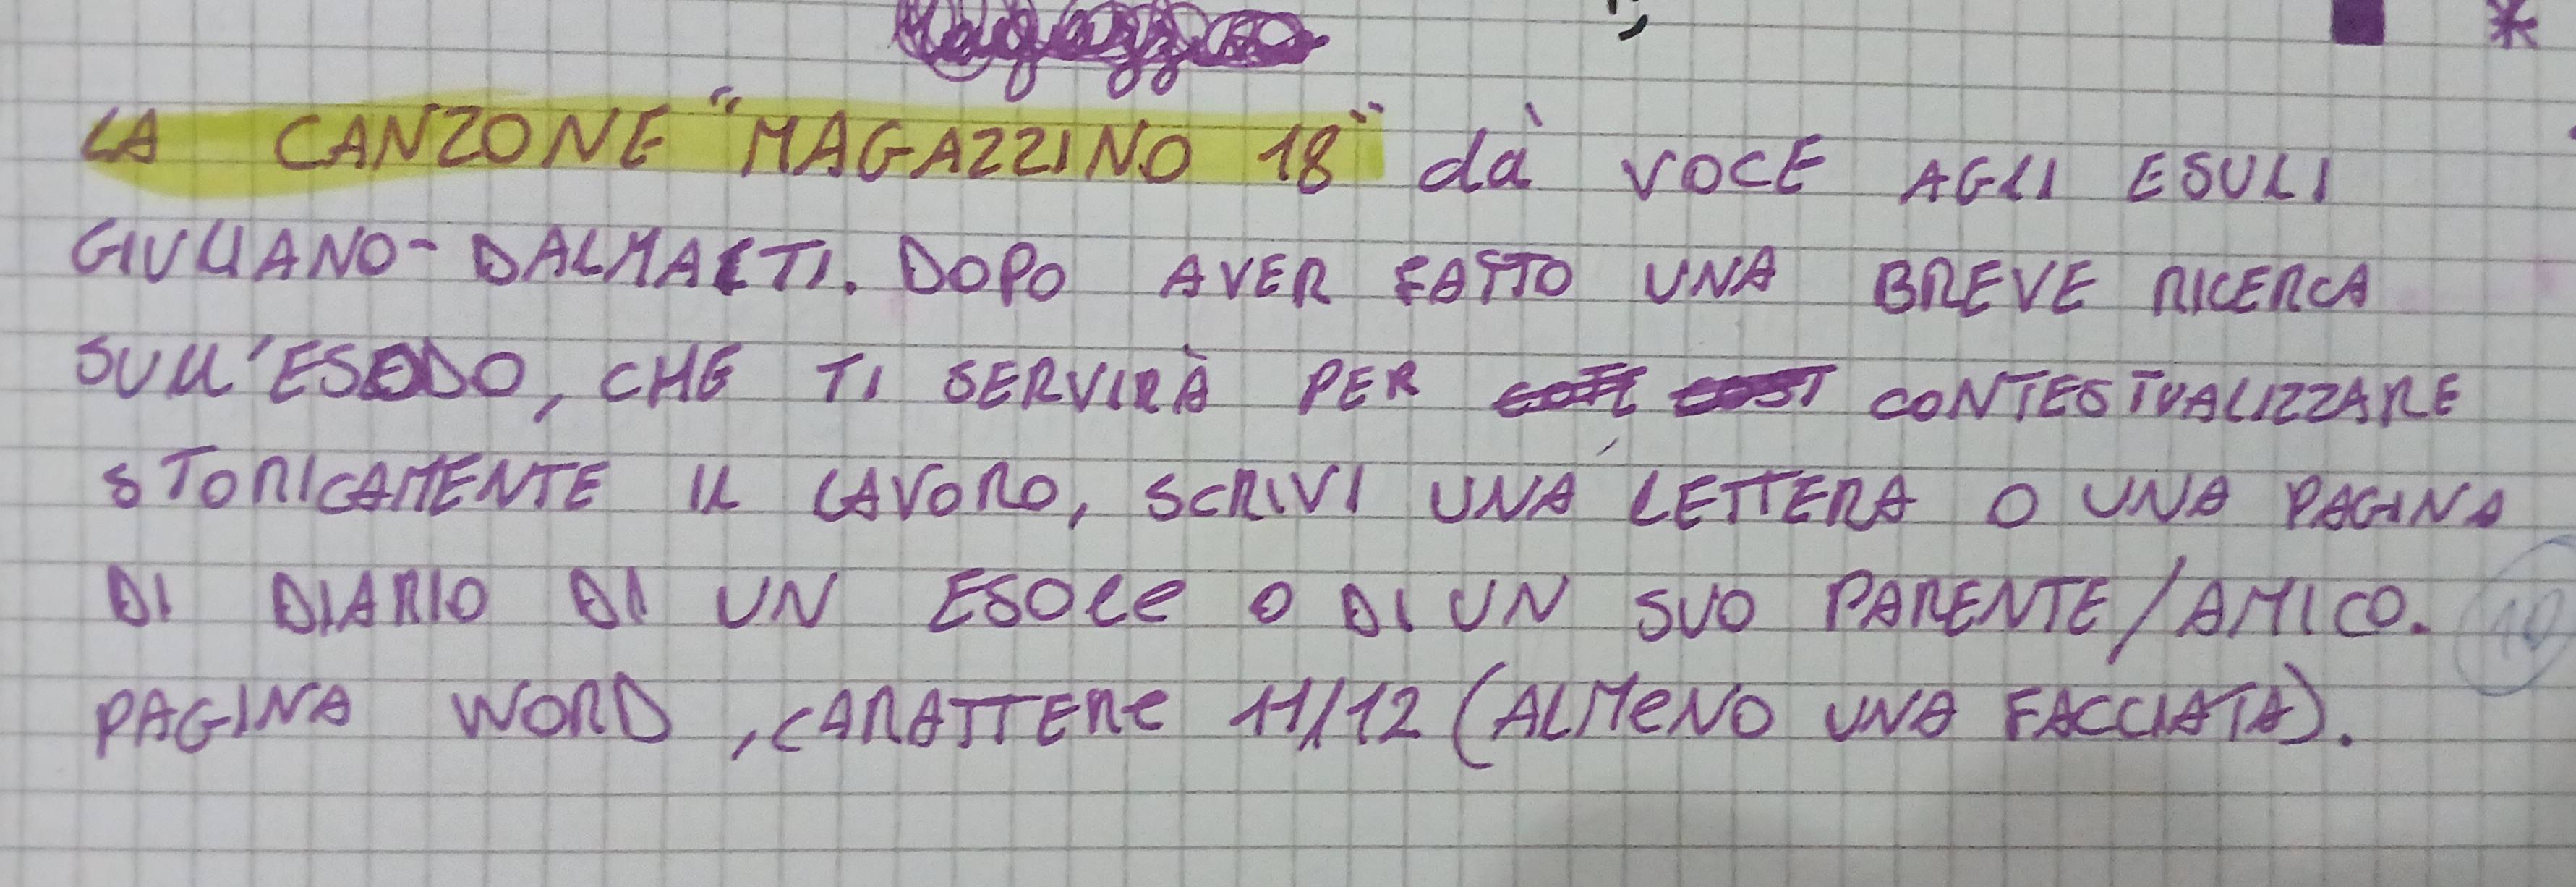 LA CANZONE "MAGAZZINO 18" dà VOCE AGLI ESULI
GIULIANO-DALMATI. DOPO AVER FATTO UNA BREVE RICERCA
SULL'ESODO, CHE TI SERVIRÀ PER CONTESTUALIZZARE
STORICAMENTE IL LAVORO, SCRIVI UNA LETTERA O UNA PAGINA
DI DIARIO DI UN ESOLE O DI UN SUO PARENTE/AMICO.
PAGINA WORD, CARATTERE 11/12 (ALMENO UNA FACCIATA).